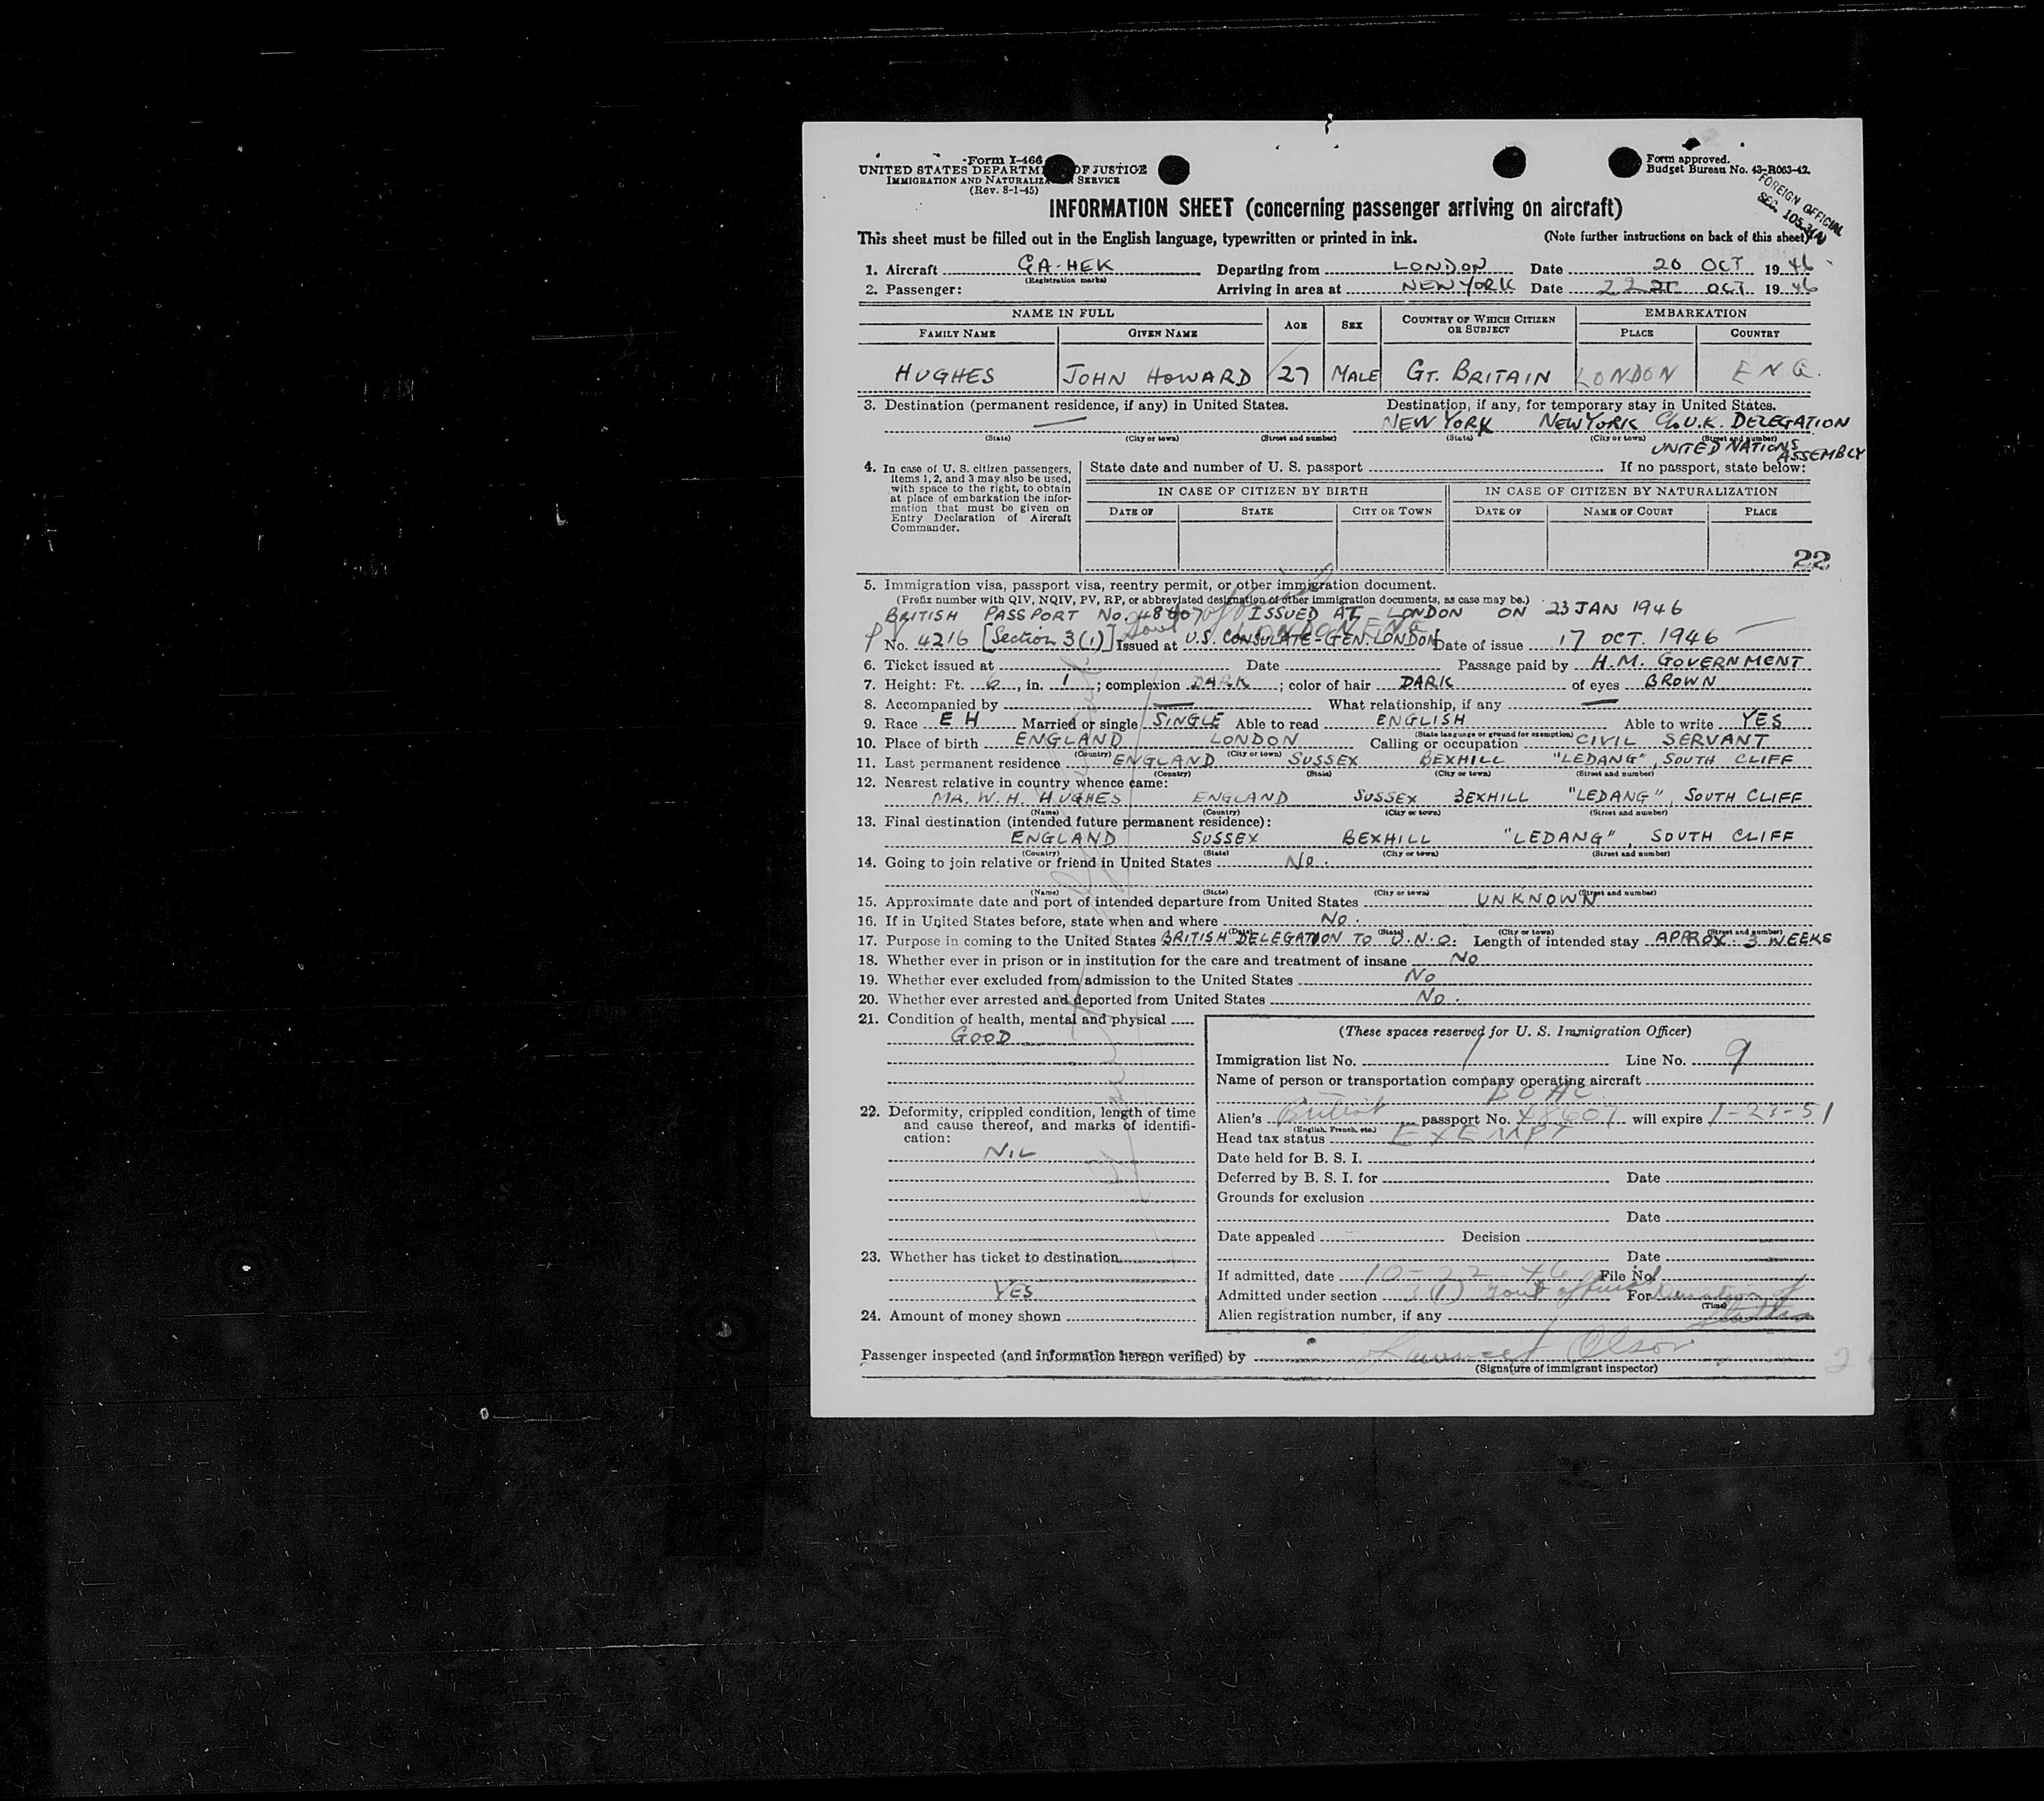 Form I-466
UNITED STATES DEPARTMENT OF JUSTICE
IMMIGRATION AND NATURALIZATION SERVICE
(Rev. 8-1-45)
Form approved.
Budget Bureau No. 43-R063-42.
FOREIGN OFFICIAL
SEC. 105.3(A)
INFORMATION SHEET (concerning passenger arriving on aircraft)
This sheet must be filled out in the English language, typewritten or printed in ink. (Note further instructions on back of this sheet)
1. Aircraft GA-HEK Departing from LONDON Date 20 OCT 1946
(Registration marks)
2. Passenger: Arriving in area at NEW YORK Date 22 OCT 1946
NAME IN FULL AGE SEX COUNTRY OF WHICH CITIZEN OR SUBJECT EMBARKATION
FAMILY NAME GIVEN NAME PLACE COUNTRY
HUGHES JOHN HOWARD 27 MALE GT. BRITAIN LONDON ENG.
3. Destination (permanent residence, if any) in United States. Destination, if any, for temporary stay in United States.
— NEW YORK NEW YORK C/o U.K. DELEGATION
(State) (City or town) (Street and number) (State) (City or town) (Street and number)
UNITED NATIONS ASSEMBLY
4. In case of U. S. citizen passengers, items 1, 2, and 3 may also be used, with space to the right, to obtain at place of embarkation the information that must be given on Entry Declaration of Aircraft Commander.
State date and number of U. S. passport If no passport, state below:
IN CASE OF CITIZEN BY BIRTH IN CASE OF CITIZEN BY NATURALIZATION
DATE OF STATE CITY OR TOWN DATE OF NAME OF COURT PLACE
22
5. Immigration visa, passport visa, reentry permit, or other immigration document.
(Prefix number with QIV, NQIV, PV, RP, or abbreviated designation of other immigration documents, as case may be.)
BRITISH PASSPORT No. 48607 ISSUED AT LONDON ON 23 JAN 1946
PV No. 4216 [Section 3(1)] Issued at U.S. CONSULATE-GEN. LONDON Date of issue 17 OCT. 1946
6. Ticket issued at Date Passage paid by H.M. GOVERNMENT
7. Height: Ft. 6, in. 1; complexion DARK; color of hair DARK of eyes BROWN
8. Accompanied by — What relationship, if any —
9. Race E H Married or single SINGLE Able to read ENGLISH Able to write YES
(State language or ground for exemption)
10. Place of birth ENGLAND LONDON Calling or occupation CIVIL SERVANT
(Country) (City or town)
11. Last permanent residence ENGLAND SUSSEX BEXHILL "LEDANG", SOUTH CLIFF
(Country) (State) (City or town) (Street and number)
12. Nearest relative in country whence came:
MR. W. H. HUGHES ENGLAND SUSSEX BEXHILL "LEDANG", SOUTH CLIFF
(Name) (Country) (City or town) (Street and number)
13. Final destination (intended future permanent residence):
ENGLAND SUSSEX BEXHILL "LEDANG", SOUTH CLIFF
(Country) (State) (City or town) (Street and number)
14. Going to join relative or friend in United States No.
(Name) (State) (City or town) (Street and number)
15. Approximate date and port of intended departure from United States UNKNOWN
16. If in United States before, state when and where No.
(Date) (State) (City or town) (Street and number)
17. Purpose in coming to the United States BRITISH DELEGATION TO U.N.O. Length of intended stay APPROX. 3 WEEKS
18. Whether ever in prison or in institution for the care and treatment of insane No
19. Whether ever excluded from admission to the United States No
20. Whether ever arrested and deported from United States No.
21. Condition of health, mental and physical
GOOD
22. Deformity, crippled condition, length of time and cause thereof, and marks of identification:
NIL
23. Whether has ticket to destination
YES
24. Amount of money shown
(These spaces reserved for U. S. Immigration Officer)
Immigration list No. 1 Line No. 9
Name of person or transportation company operating aircraft
BOAC
Alien's British passport No. 48607 will expire 1-23-51
(English, French, etc.)
Head tax status EXEMPT
Date held for B. S. I.
Deferred by B. S. I. for Date
Grounds for exclusion
Date
Date appealed Decision
Date
If admitted, date 10-22-46 File No.
Admitted under section 3(1) Govt official For Duration of Status
(Time)
Alien registration number, if any
Passenger inspected (and information hereon verified) by Olson
(Signature of immigrant inspector)